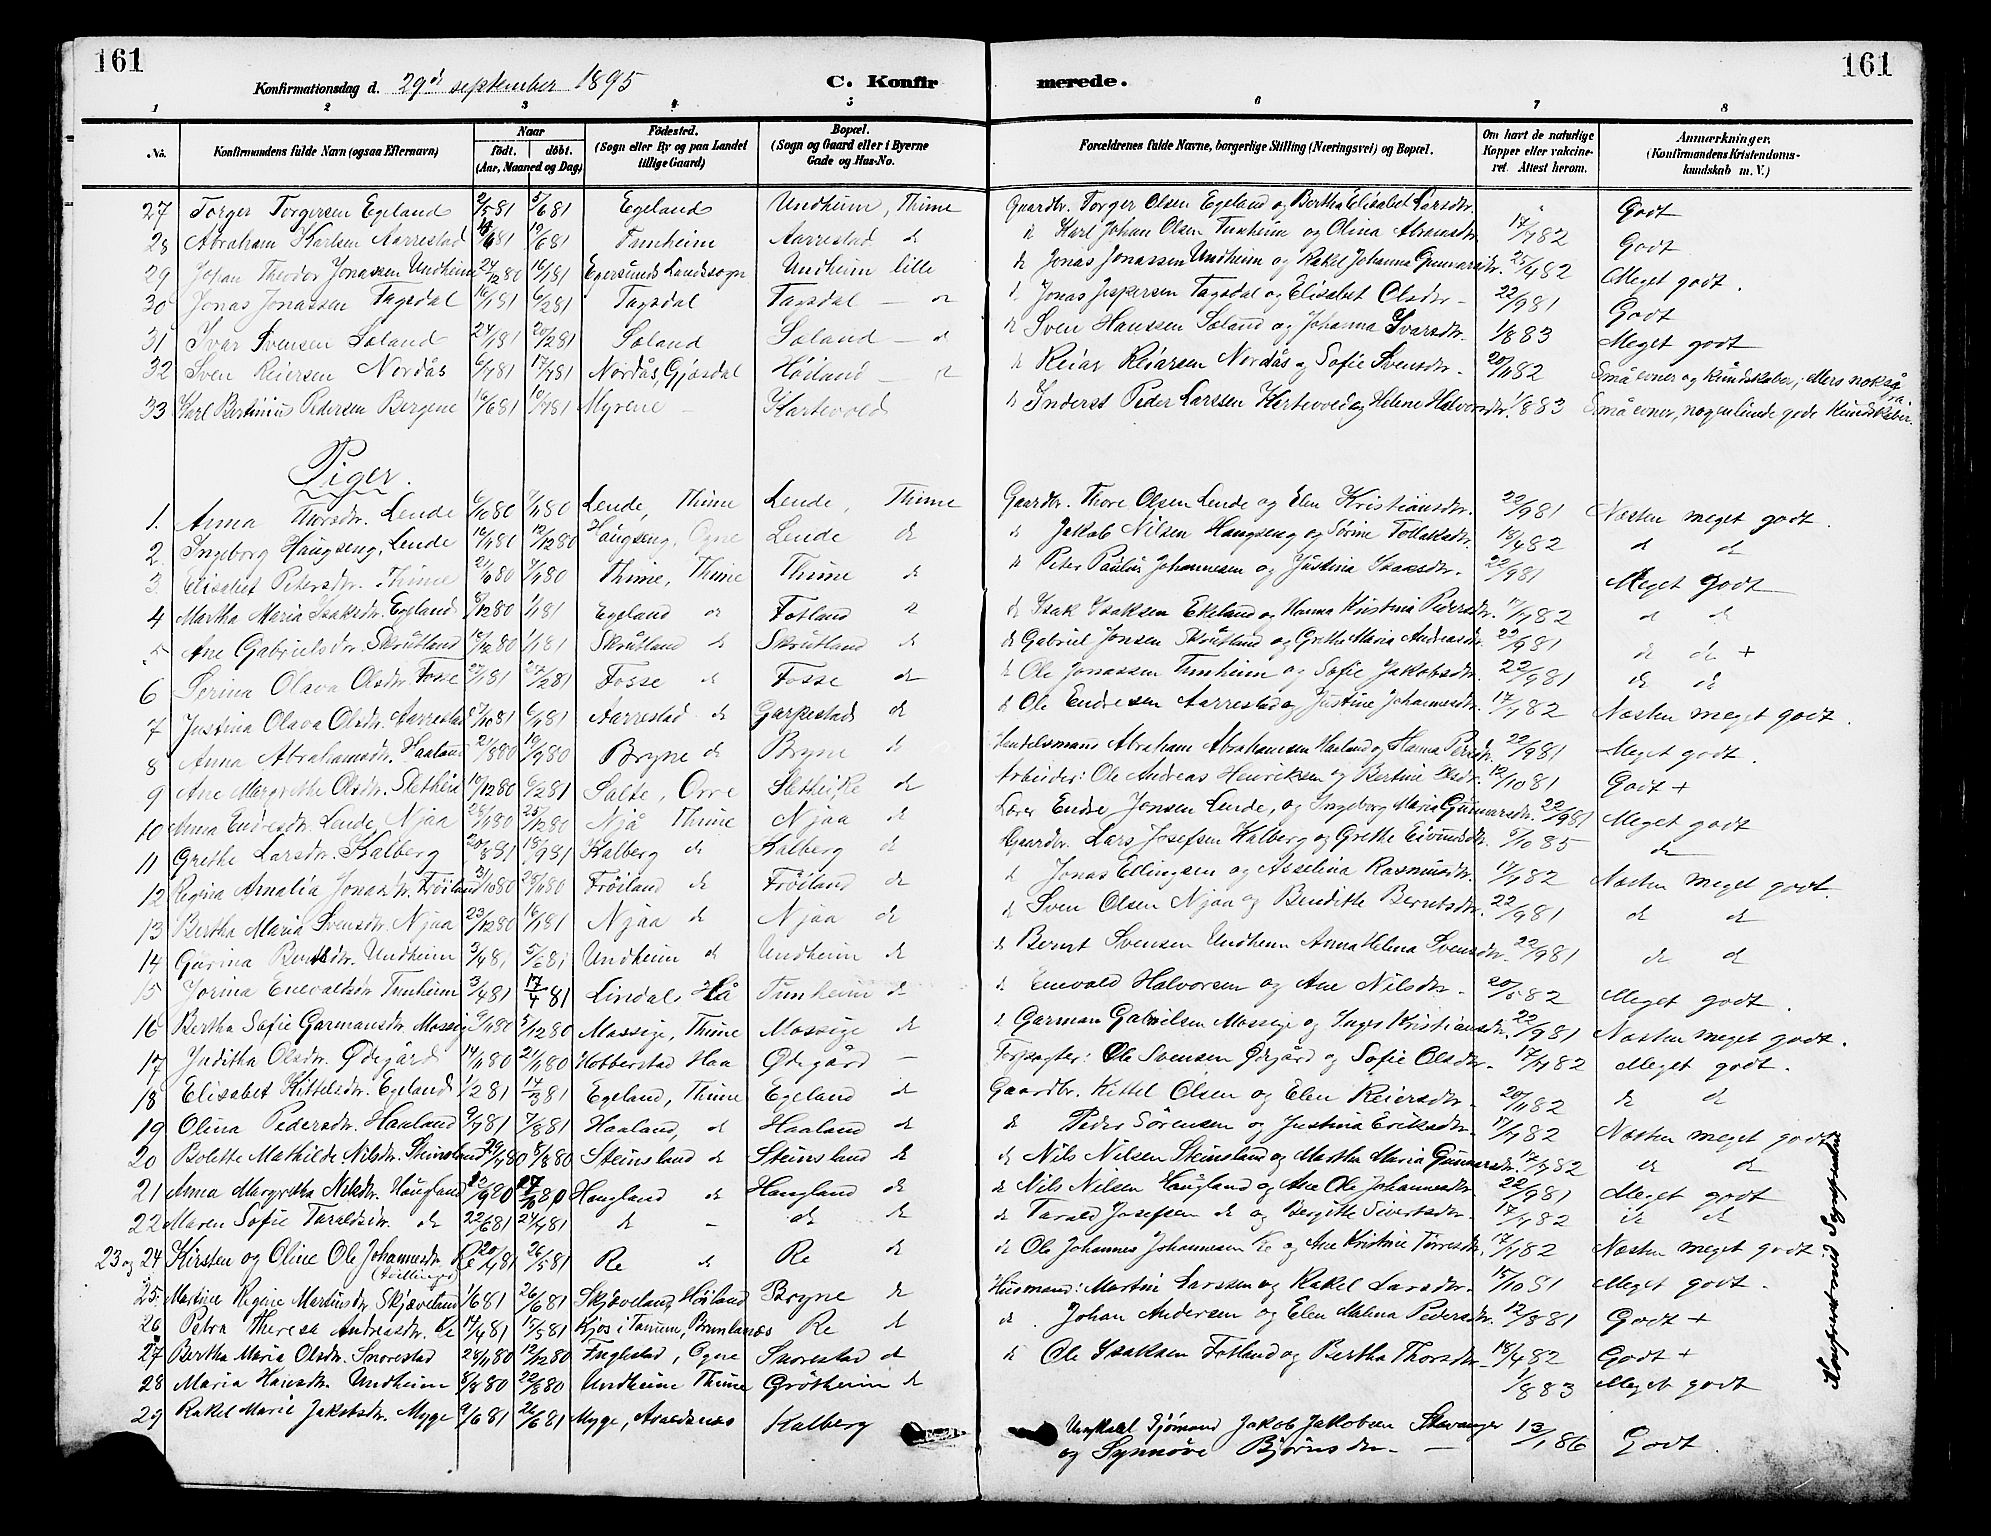 161
161
Konfirmationsdag d. 29de september 1895
C. Konfirmerede.
1 2 3 4 5 6 7 8
No. Konfirmandens fulde Navn (ogsaa Efternavn) Naar født. døbt. (Aar, Maaned og Dag) Fødested. (Sogn eller By og paa Landet tillige Gaard) Bopæl. (Sogn og Gaard eller i Byerne Gade og Hus-No. Forældrenes fulde Navne, borgerlige Stilling (Næringsvei) og Bopæl. Om havt de naturlige Kopper eller vakcineret. Attest herom. Anmærkninger. (Konfirmandens Kristendomskundskab m. V.)
27 Torger Torgersen Egeland 2/5 81 5/6 81 Egeland Undheim, Thime Gaardbr. Torger Olsen Egeland og Bertha Elisabet Larsdtr. " Godt
28 Abraham Karlsen Aarrestad 81 12/6 81 Tunheim Aarrestad do do Karl Johan Olsen Tunheim og Olina Abramsdtr. 17/7 82 Godt
29 Johan Theodor Jonassen Undheim 27/12 80 16/1 81 Egersunds Landsogn Undheim lille do Jonas Jonassen Undheim og Rakel Johanna Gunnarsdtr. 25/4 82 Meget godt.
30 Jonas Jonassen Tagsdal 16/1 81 6/2 81 Tagsdal Tagsdal – do do Jonas Jespersen Tagsdal og Elisabet Olsdtr – 22/9 81 Godt
31 Ivar Svensen Søland 24/1 81 20/2 81 Søland Søland – do do Sven Hanssen Søland og Johanna Ivarsdtr. 1/8 83 Meget godt
32 Sven Reiersen Nordås 6/4 81 17/4 81 Nordås, Gjæsdal Høiland – do do Reiar Reiarsen Nordås og Sofie Svensdtr. 20/11 82 Små evner og kundskaber; ellers nokså bra.
33 Karl Bertinius Pedersen Bergene 16/6 81 10/7 81 Myrene – Hartevold do Inderst Peder Larssen Hertevold og Helene Halvorsdtr. 1/8 83 Små evner, nogenlunde gode Kundskaber.
Piger.
1. Anna Thorsdtr. Lende 6/10 80 7/11 80 Lende, Thime Lende, Thime Gaardbr. Thore Olsen Lende og Elen Kristiansdtr. 22/9 81 Næsten meget godt.
2. Ingeborg Haugseng, Lende 16/11 80 12/12 80 Haugseng, Ogne Lende do do Jakob Nilsen Haugseng og Sørine Tollaksdtr. 18/4 82 do do
3. Elisabet Petersdtr. Thime 21/9 80 7/11 80 Thime, Thime Thime do do Peter Paulus Johannesen og Justina Isaksdtr. 22/9 81 Meget godt
4 Martha Maria Isaksdtr. Egeland 8/12 80 1/1 81 Egeland do Fotland do do Isak Isaksen Ekeland og Hanna Kristina Pedersdtr. 17/7 82 do do
5 Ane Gabrielsdtr. Skrutland 16/12 80 1/1 81 Skrutland do Skrutland do do Gabriel Jonsen Skrutland og Grethe Maria Andreasdtr. 22/9 81 do do +
6 Serina Olava Olsdtr. Fosse 27/1 81 27/2 81 Fosse do Fosse do do Ole Jonassen Tunheim og Sofie Jakobsdtr. 22/9 81 do do
7 Justina Olava Olsdtr. Aarrestad 81 6/1 81 Aarrestad do Garpestad do do Ole Endresen Aarrestad og Justine Johannesdtr. 17/7 82 Næsten meget godt.
8 Anna Abrahamsdtr. Haaland 21/8 80 19/9 80 Bryne do Bryne do Handelsmand Abraham Abrahamsen Haaland og Hanna Persdtr. 22/9 81 Meget godt.
9 Ane Margrethe Olsdtr. Sletheie 10/12 80 6/2 81 Salte, Orre Sletheie do Arbeider: Ole Andreas Henriksen og Bertine Olsdtr. 12/10 81 Godt +
10 Anna Endresdtr. Lende, Njaa 28/11 80 25/12 80 Njå Thime Njaa do Lærer Endre Jonsen Lende, og Ingeborg Maria Gunnarsdtr. 22/9 81 Meget godt
11 Grethe Larsdtr. Kalberg 20/8 81 18/9 81 Kalberg do Kalberg do Gaardbr. Lars Josefsen Kalberg og Grethe Eivindsdtr. 5/10 85 do
12 Regina Amalia Jonasdtr. Frøiland 31/10 80 28/11 80 Frøiland do Frøiland do do Jonas Ellingsen og Asselina Rasmusdtr. 17/7 82 Næsten meget godt.
13 Bertha Maria Svensdtr. Njaa 23/12 80 16/1 81 Njaa do Njaa do do Sven Olsen Njaa og Bendikte Berntsdtr. 22/9 81 do do
14 Gurina Berntsdtr. Undheim 3/4 81 5/6 81 Undheim do Undheim do do Bernt Svensen Undheim Anna Helena Svensdtr. 22/9 81 do do
15 Jorina Enevaldsdtr Tunheim 3/4 81 17/4 81 Lindal, Hå Tunheim do do Enevald Halvorsen og Ane Nilsdtr – 20/5 82 Meget godt.
16 Bertha Sofie Garmansdtr. Mossige 9/11 80 5/12 80 Mossige, Thime Mossige do do Garman Gabrielsen Mossige og Inger Kristiansdtr. 22/9 81 Næsten meget godt.
17 Juditha Olsdtr. Ødegård 14/11 80 21/11 80 Hobberstad Haa Ødegård – Forpagter: Ole Svensen Ødegård og Sofie Olsdtr. 17/7 82 Meget godt.
18 Elisabet Kittelsdtr. Egeland 1/2 81 14/3 81 Egeland, Thime Egeland do Gaardbr. Kittel Olsen og Elen Reiersdtr. 20/11 82 do do
19 Olina Pedersdtr. Haaland 9/7 81 7/8 81 Haaland, do Haaland do do Peder Sørensen og Justina Eriksdtr. 17/7 82 Næsten meget godt
20 Bolette Mathilde Nilsdtr. Steinsland 29/7 80 8/8 80 Steinsland do Steinsland do do Nils Nilsen Steinsland og Martha Maria Gunnarsdtr. 17/7 82 do do
21 Anna Margretha Nilsdtr. Haugland 23/9 80 17/10 80 Haugland do Haugland do do Nils Nilsen Haugland og Ane Ole Johannesdtr. 22/9 81 Meget godt
22 Maren Sofie Taraldsdtr. do 22/6 81 24/7 81 do – do do do Tarald Josefsen do og Bergitte Sivertsdtr. 17/7 82 do do
23 og 24 Kirsten og Oline Ole Johannesdtr Re 20/4 81 26/5 81 Re do Re do do Ole Johannes Johannesen Re og Ane Kristine Tørresdtr. 17/7 82 Næsten meget godt.
(Tvillinger)
25. Martine Regine Martinsdtr Skjæveland 1/6 81 26/6 81 Skjæveland, Høiland Bryne do Husmand: Martin Larssen og Rakel Larsdtr. 15/10 81 Meget godt.
26 Petra Theresa Andreasdtr. Re 14/4 81 15/5 81 Kjos i Tanum, Brunlanæs Re do do. Johan Andersen og Elen Malena Pedersdtr. 12/8 81 Godt +
27 Bertha Maria Olsdtr. Snorestad 28/11 80 12/12 80 Fuglestad, Ogne Snorestad do do Ole Isaksen Fotland og Bertha Thorsdtr – 18/4 82 Godt +
28 Maria Hansdtr. Undheim 8/8 80 22/8 80 Undheim Thime Grøtheim do 1/8 83 Meget godt
29 Rakel Marie Jakobsdtr. Myge 9/6 81 26/6 81 Myge, Avaldsnæs Kalberg Uægteskab Sjømand Jakob Jakobsen Stavanger og Synnøve Bjørnsdtr – – 13/1 86 Godt.